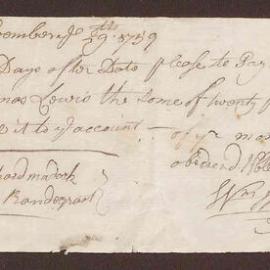 ember ye 29th 1759
Days after Date please to Pay
mas Lewis the some of twenty
it to yr account - of yr mo
obediend
hard madock
Randegrant
Wm